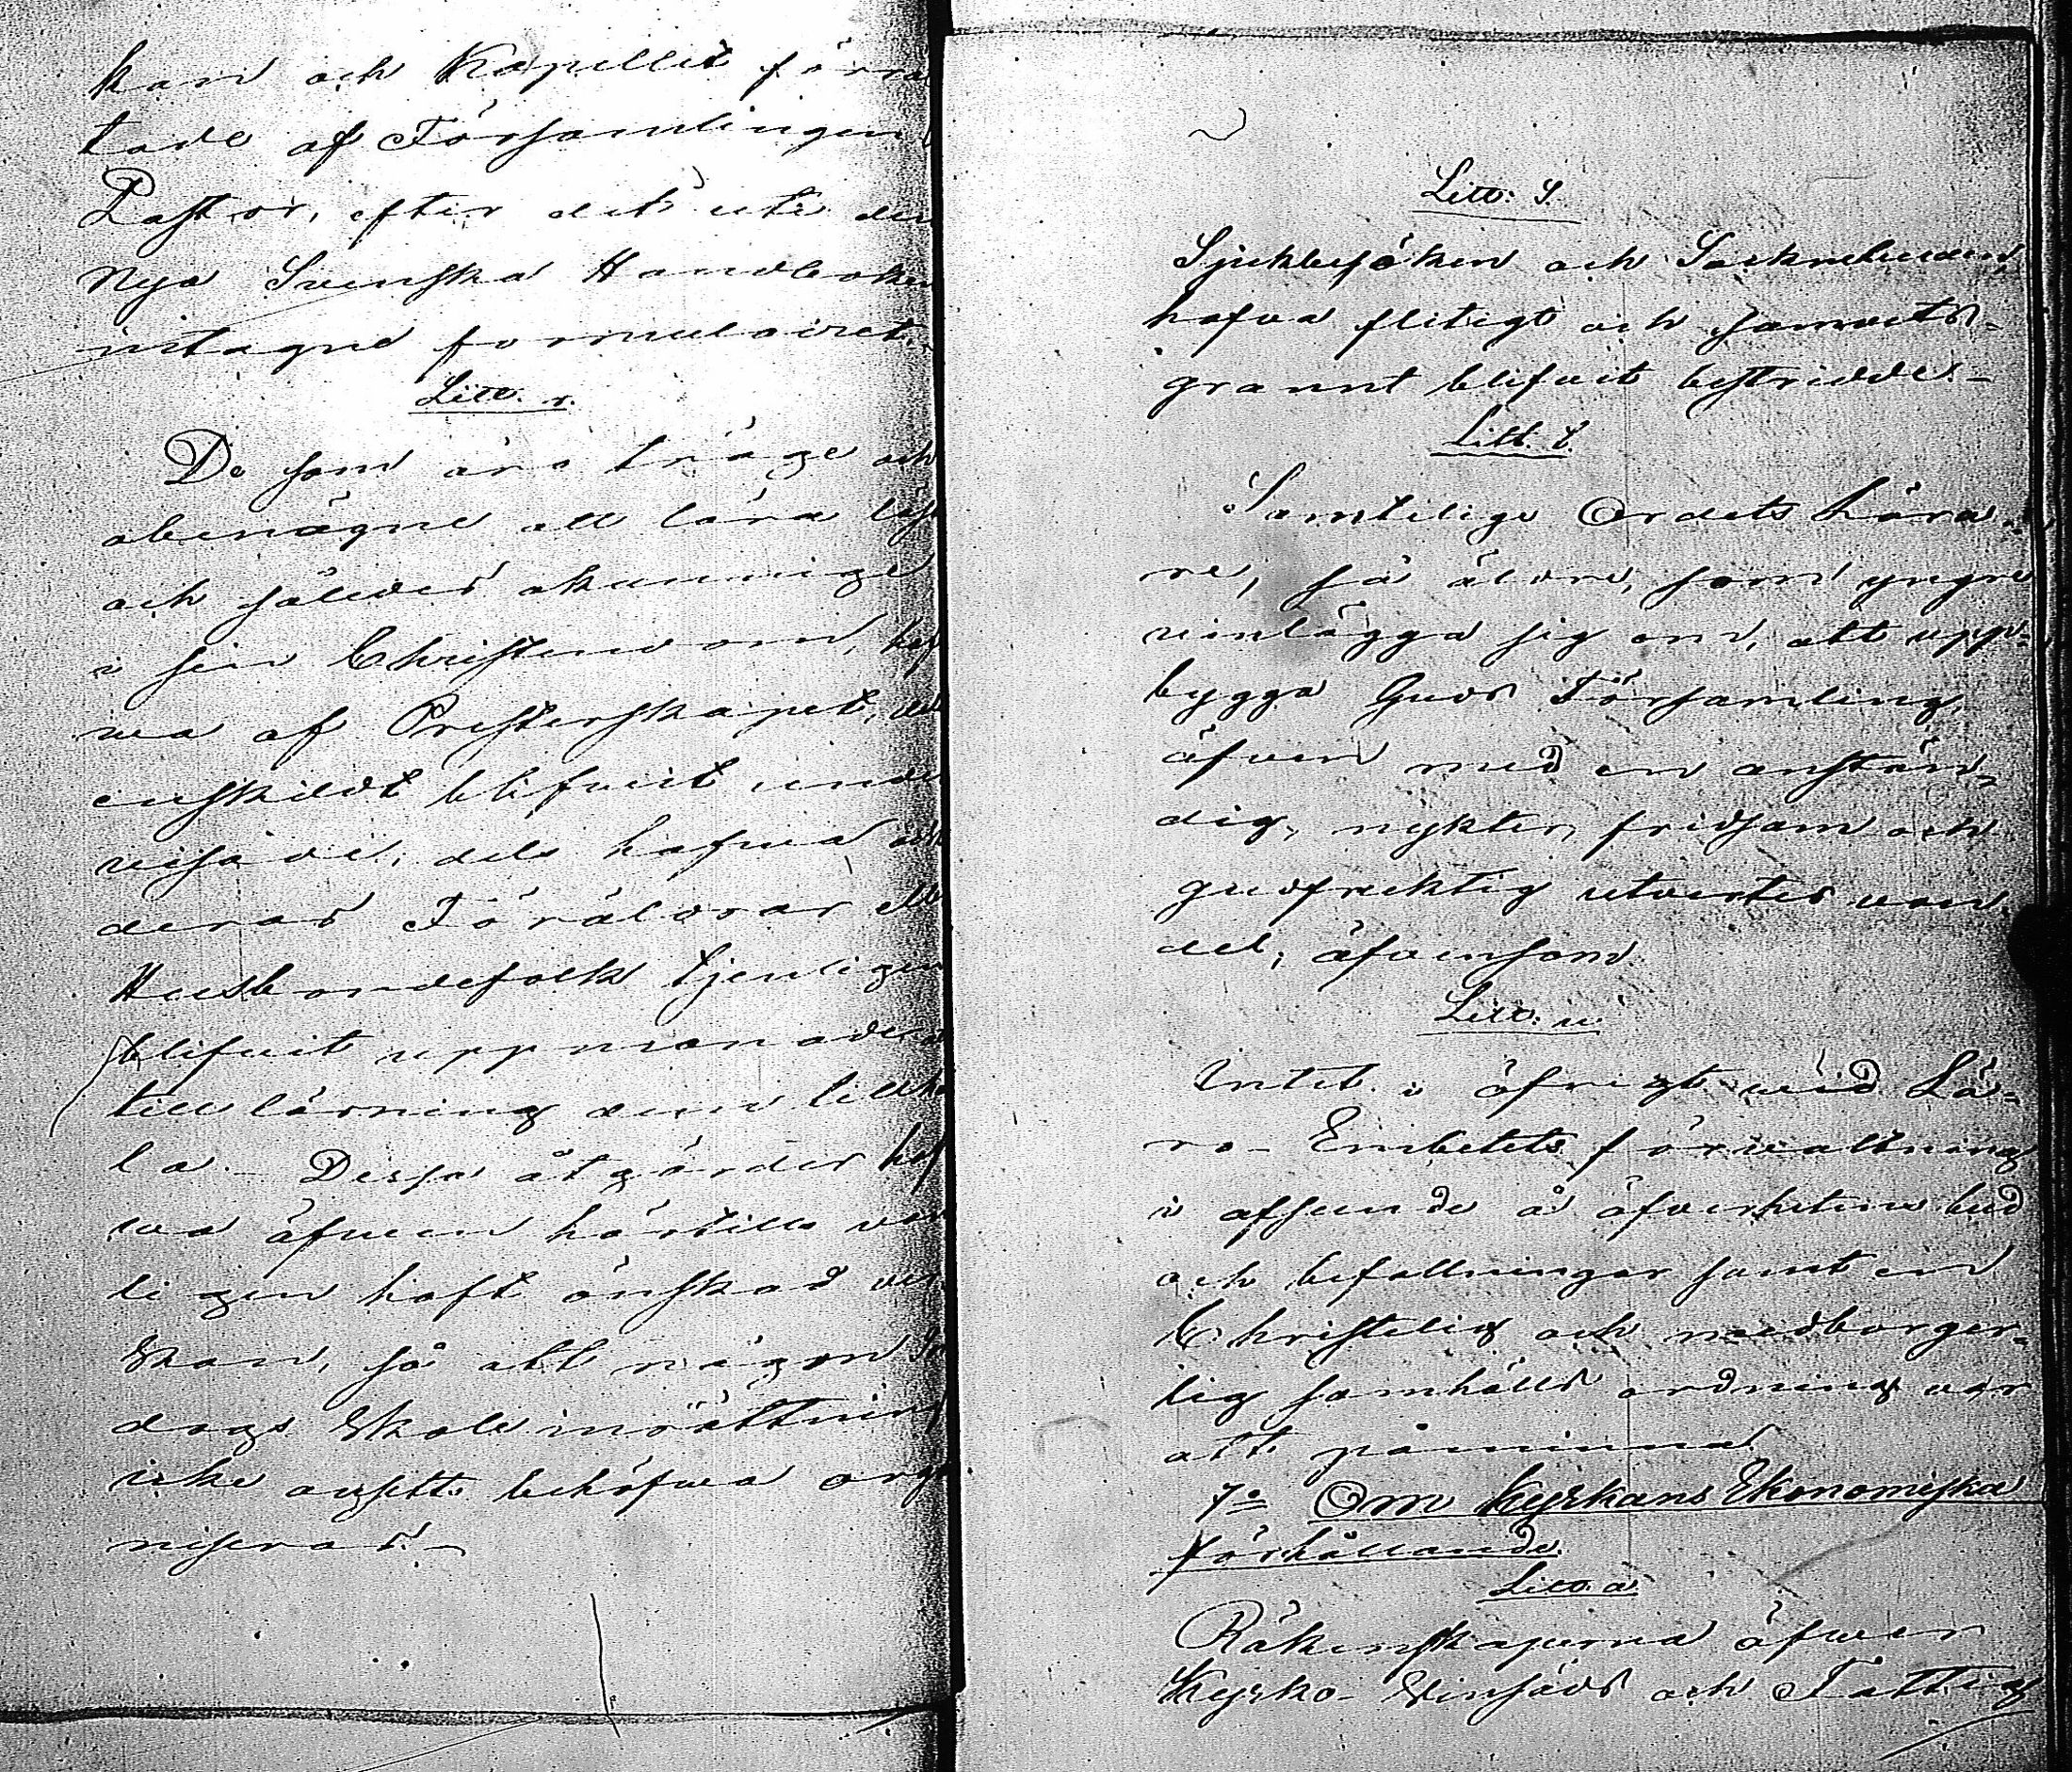 kan och Kapellet förrä
tade af Församlingens
Pastor, efter det uti den
Nya Svenska Handboken
intagne formulairet.
Litt. r.
De som äro tröge och
obenägne att lära läs
och således okunnige
i sin Christendom, haf
wa af Presterskapet, del
enskildt blifwit unde
wisade, dels hafwa ock
deras Föräldrar ell
Husbondefolk tjenligen
blifwit uppmanade at
till lärning dem tillhå
la. - Dessa åtgärder haf
wa äfwen härtills van
ligen haft önskad ver
kan, så att någon Sön
dags Skole inrättning
icke ansetts behöfwa orga
niseras. -
Litt: S.
Sjukbesöken och Socknebuden
hafva flitigt och samvets-
grannt blifvit bestridde. -
Litt. t.
Samtelige Ordets höra-
re, så äldre, som yngre
vinlägga sig om, att upp-
bygga Guds Församling,
äfven med en anstän-
dig, nykter, fridsam och
gudfruktig utvertes van-
del; äfvensom
Litt: u.
Intet i öfrigt wid Lä-
ro-Embetets förwaltning
i afseende å öfverhetens bud
och befallningar samt en
Christelig och medborger-
lig samhälls ordning var
att påminna
7o Om Kyrkans Ekonomiska
förhållande.
Litt. a
Räkenskaperna öfwer
Kyrko- Vinsäds och Fattig